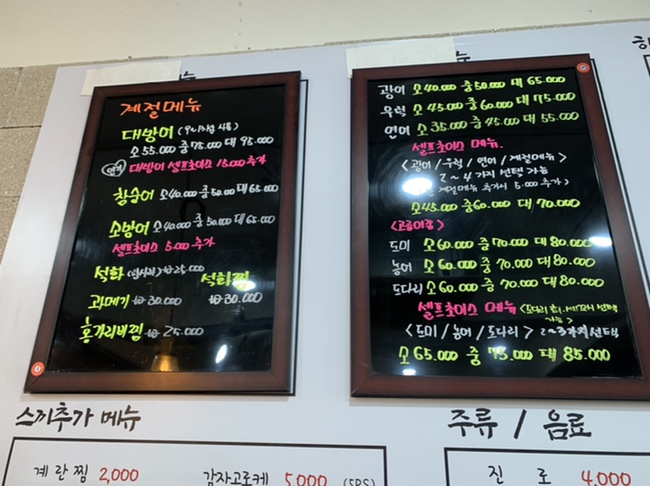 계절메뉴
대방어
소 55.000 중 75.000 대 95.000
대방어 셀프초이스 15.000 추가
참숭어 소 40.000 중 50.00 대 65.000
소방어 소 40.000 중 50.000 대 65.000
셀프초이스 5.000 추가
석화 25.000
석화찜
30.000
과메기 30.000
홍가리비찜 25.000
광어 소 40.000 중 50.000 대 65.000
우럭 소 45.000 중 60.000 대 75.000
연어 소 35.000 중 45.000 대 55.000
셀프초이스 메뉴.
<광어/우럭/연어/계절메뉴>
2~4 가지 선택 가능
계절메뉴 추가시 5.000 추가)
소 45.000 중 60.000 대 70.000
<고급어종>
도미 소 60.000 중 70.000 대 80.000
농어 소 60.000 중 70.000 대 80.000
도다리 소 60.000 중 70.000 대 80.000
셀프초이스 메뉴
가능>
<도미/농어/도다리> 2~3가지선택
소 65.000 중 75.000 대 85.000
스끼추가 메뉴
계란찜 2,000
감자고로케 5,000 (5PS)
주류 / 음료
진로 4,000